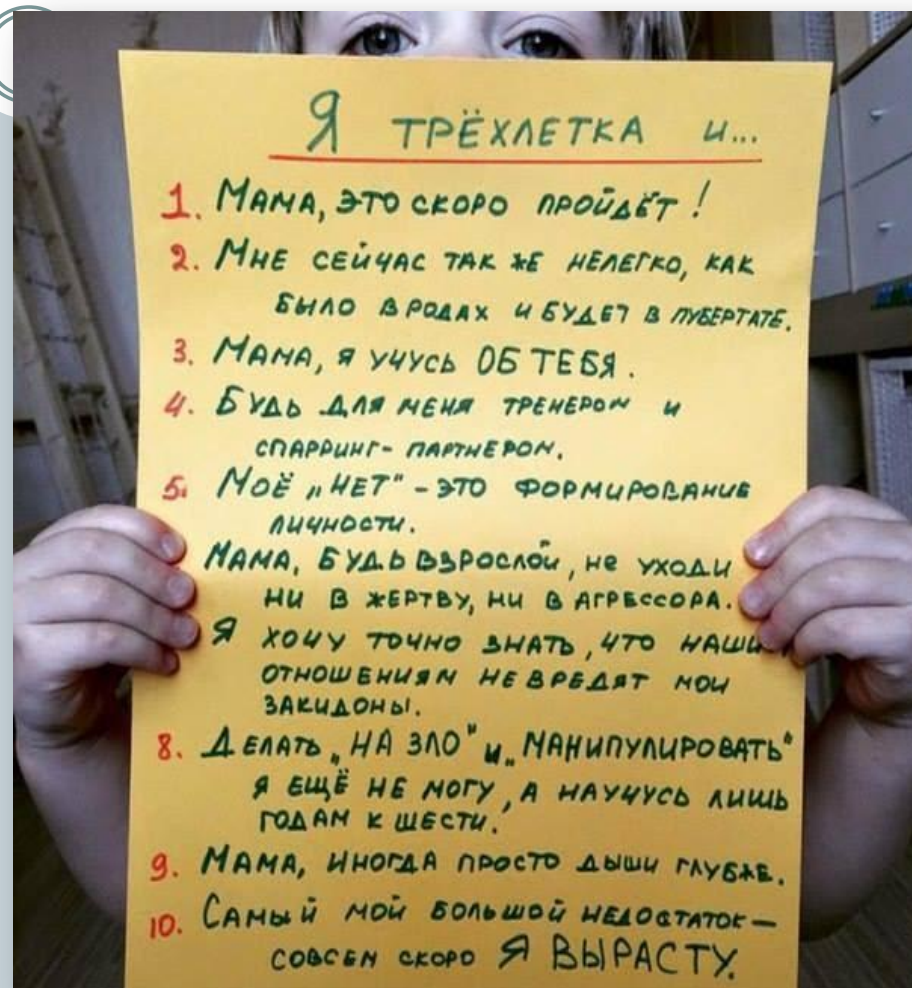 Я ТРЁХЛЕТКА И...
1. МАМА, ЭТО СКОРО ПРОЙДЁТ!
2. МНЕ СЕЙЧАС ТАК ЖЕ НЕЛЕГКО, КАК
БЫЛО В РОДАХ И БУДЕТ В ПУБЕРТАТЕ.
3. МАМА, Я УЧУСЬ ОБ ТЕБЯ.
4. БУДЬ ДЛЯ МЕНЯ ТРЕНЕРОМ И
СПАРРИНГ-ПАРТНЕРОМ.
5. МОЁ „НЕТ" - ЭТО ФОРМИРОВАНИЕ
ЛИЧНОСТИ.
МАМА, БУДЬ ВЗРОСЛОЙ, НЕ УХОДИ
НИ В ЖЕРТВУ, НИ В АГРЕССОРА.
Я ХОЧУ ТОЧНО ЗНАТЬ, ЧТО НАШИМ
ОТНОШЕНИЯМ НЕ ВРЕДЯТ МОИ
ЗАКИДОНЫ.
8. ДЕЛАТЬ „НА ЗЛО" И „МАНИПУЛИРОВАТЬ"
Я ЕЩЁ НЕ МОГУ, А НАУЧУСЬ ЛИШЬ
ГОДАМ К ШЕСТИ.
9. МАМА, ИНОГДА ПРОСТО ДЫШИ ГЛУБЖЕ.
10. САМЫЙ МОЙ БОЛЬШОЙ НЕДОСТАТОК –
СОВСЕМ СКОРО Я ВЫРАСТУ.